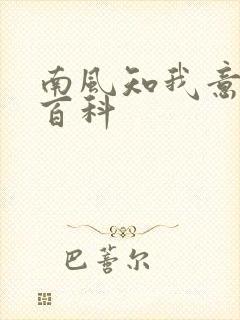 南风知我意
百科
巴蕾尔